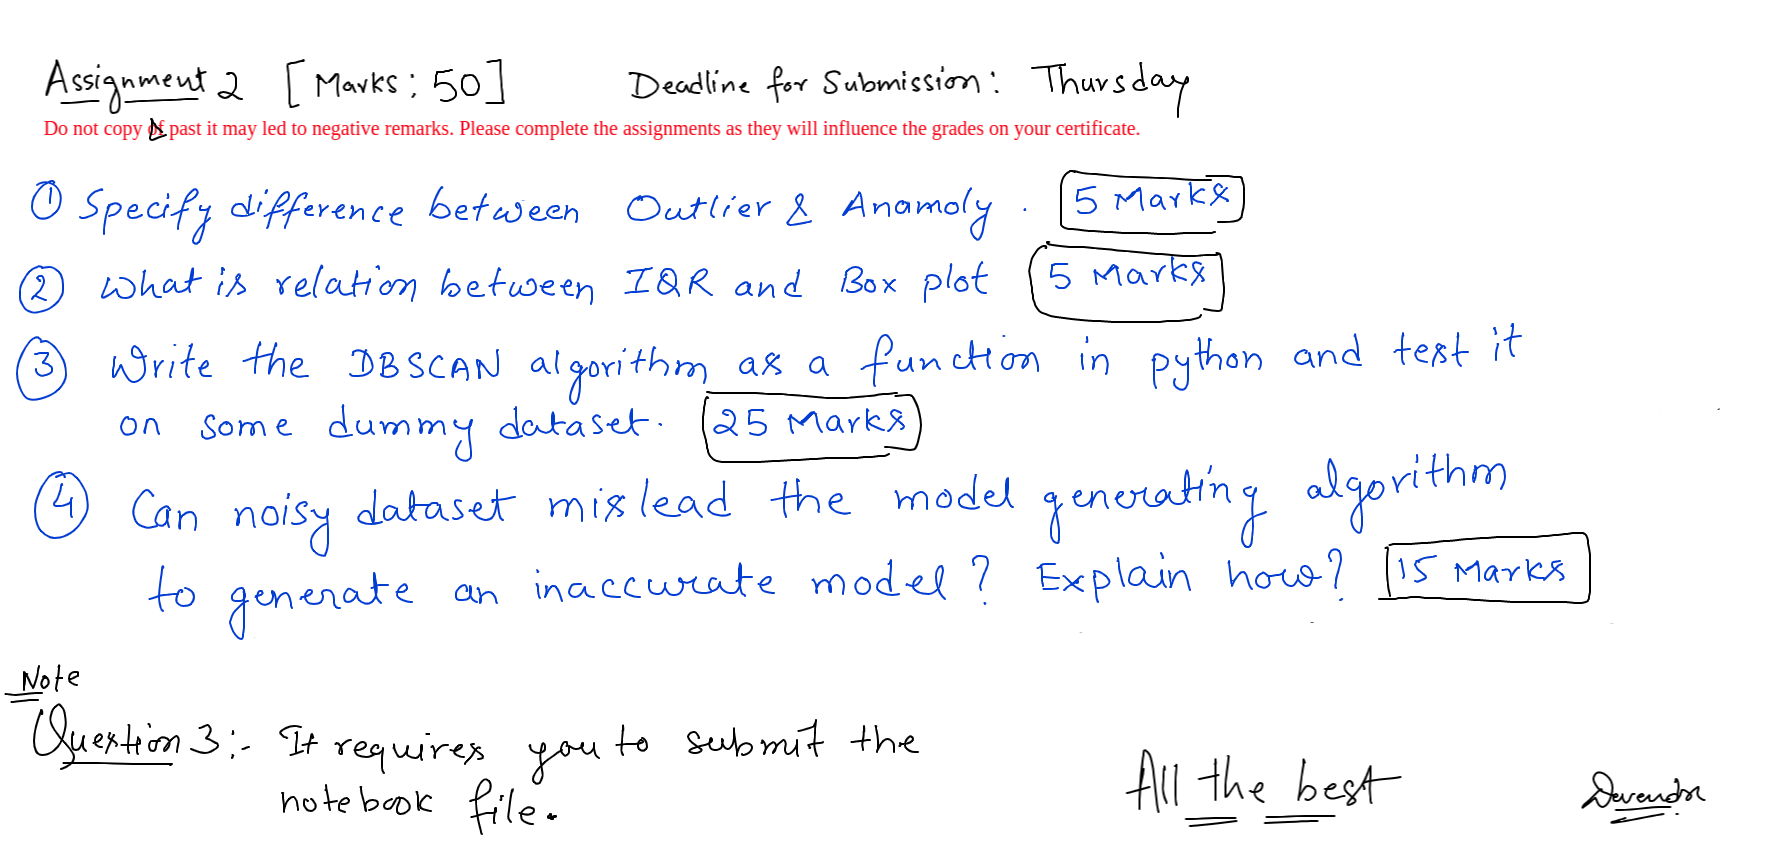 Assignment 2 [Marks: 50] Deadline for Submission: Thursday
Do not copy & past it may led to negative remarks. Please complete the assignments as they will influence the grades on your certificate.
① Specify difference between Outlier & Anamoly. 5 Marks
② What is relation between IQR and Box plot 5 Marks
③ Write the DBSCAN algorithm as a function in python and test it
on some dummy dataset. 25 Marks
④ Can noisy dataset mislead the model generating algorithm
to generate an inaccurate model? Explain how? 15 Marks
Note
Question 3:- It requires you to submit the
notebook file.
All the best
Devendra